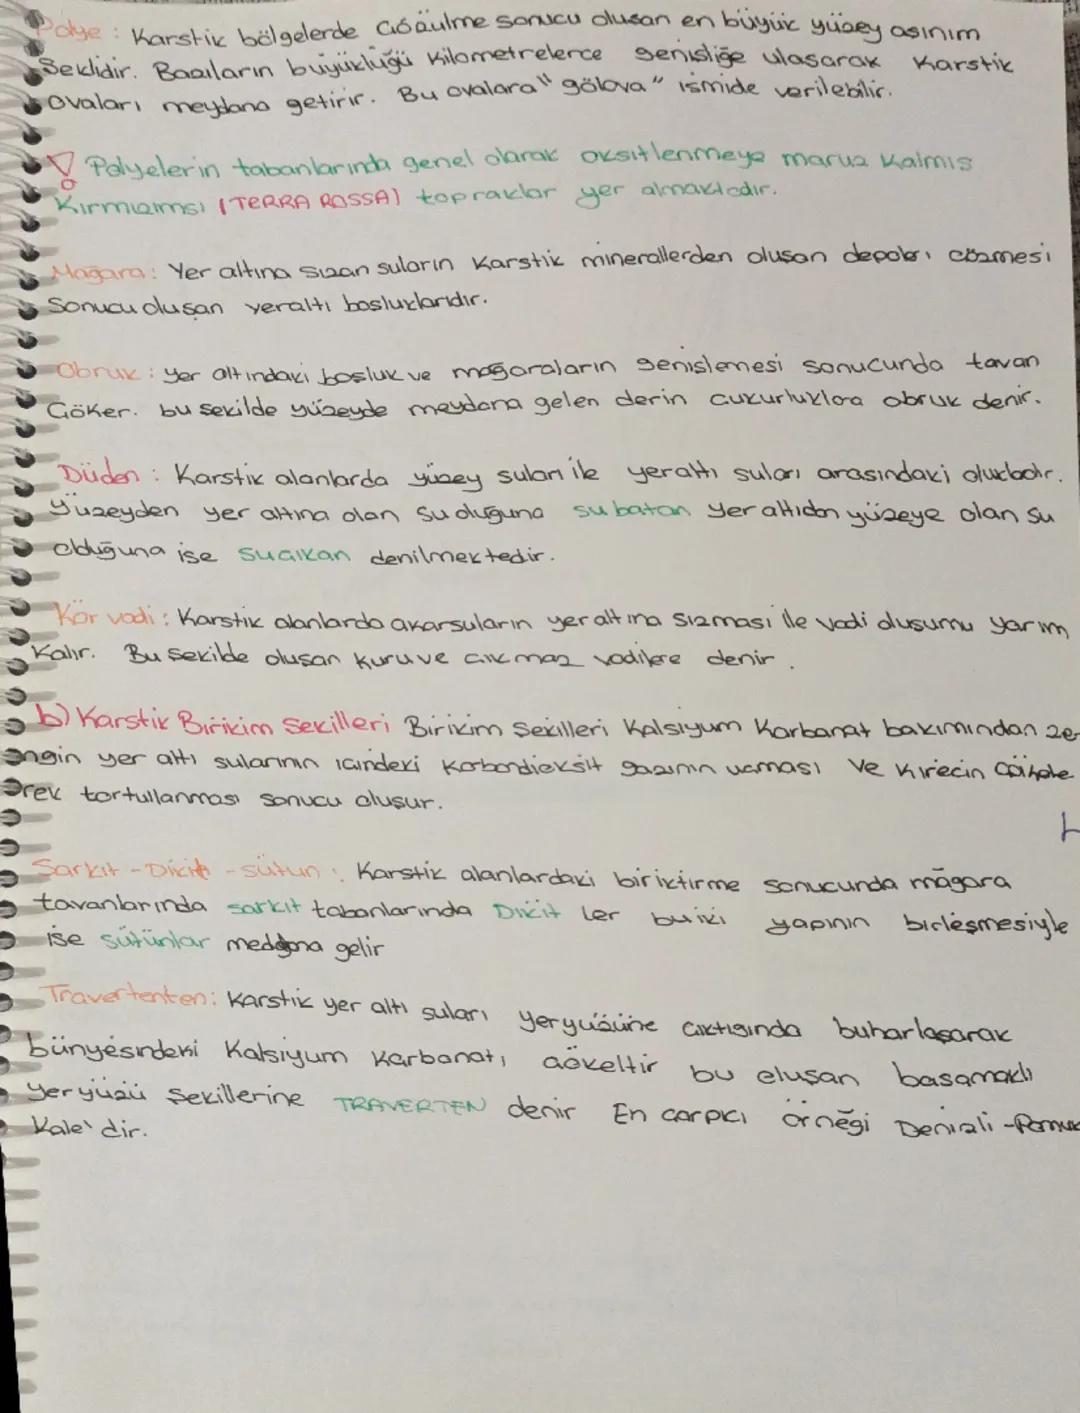 Polye : Karstik bölgelerde Çözülme sonucu oluşan en büyük yüzey aşınım
Şeklidir. Bazıların büyüklüğü Kilometrelerce genişliğe ulaşarak Karstik
ovaları meydana getirir. Bu ovalara "gölova" ismide verilebilir.
! Polyelerin tabanlarında genel olarak oksitlenmeye maruz Kalmış
Kırmızımsı (TERRA ROSSA) topraklar yer almaktadır.
Mağara : Yer altına sızan suların Karstik minerallerden oluşan depoları çözmesi
Sonucu oluşan yeraltı boşluklarıdır.
Obruk : Yer altındaki boşluk ve mağaraların genişlemesi sonucunda tavan
Çöker. bu şekilde yüzeyde meydana gelen derin çukurluklara obruk denir.
Düden : Karstik alanlarda yüzey suları ile yeraltı suları arasındaki oluklardır.
Yüzeyden yer altına olan su oluğuna su batan yer altıdan yüzeye olan su
olduğuna ise suçıkan denilmektedir.
Kör vadi : Karstik alanlarda akarsuların yer altına sızması ile vadi oluşumu yarım
Kalır. Bu şekilde oluşan kuru ve çıkmaz vadilere denir.
b) Karstik Birikim Şekilleri Birikim Şekilleri Kalsiyum Karbanat bakımından ze-
engin yer altı sularının içindeki karbondioksit gazının uçması ve kirecin çökele
erek tortullanması sonucu oluşur.
Sarkıt - Dikit - sütun : Karstik alanlardaki biriktirme sonucunda mağara
tavanlarında sarkıt tabanlarında Dikit ler bu iki yapının birleşmesiyle
ise sütünlar meddana gelir
Travertenten: Karstik yer altı suları yeryüzüne çıktığında buharlaşarak
bünyesindeki Kalsiyum Karbanatı çökeltir bu oluşan basamaklı
Yeryüzü Şekillerine TRAVERTEN denir En çarpıcı örneği Denizli - Pamuk
Kale' dir.